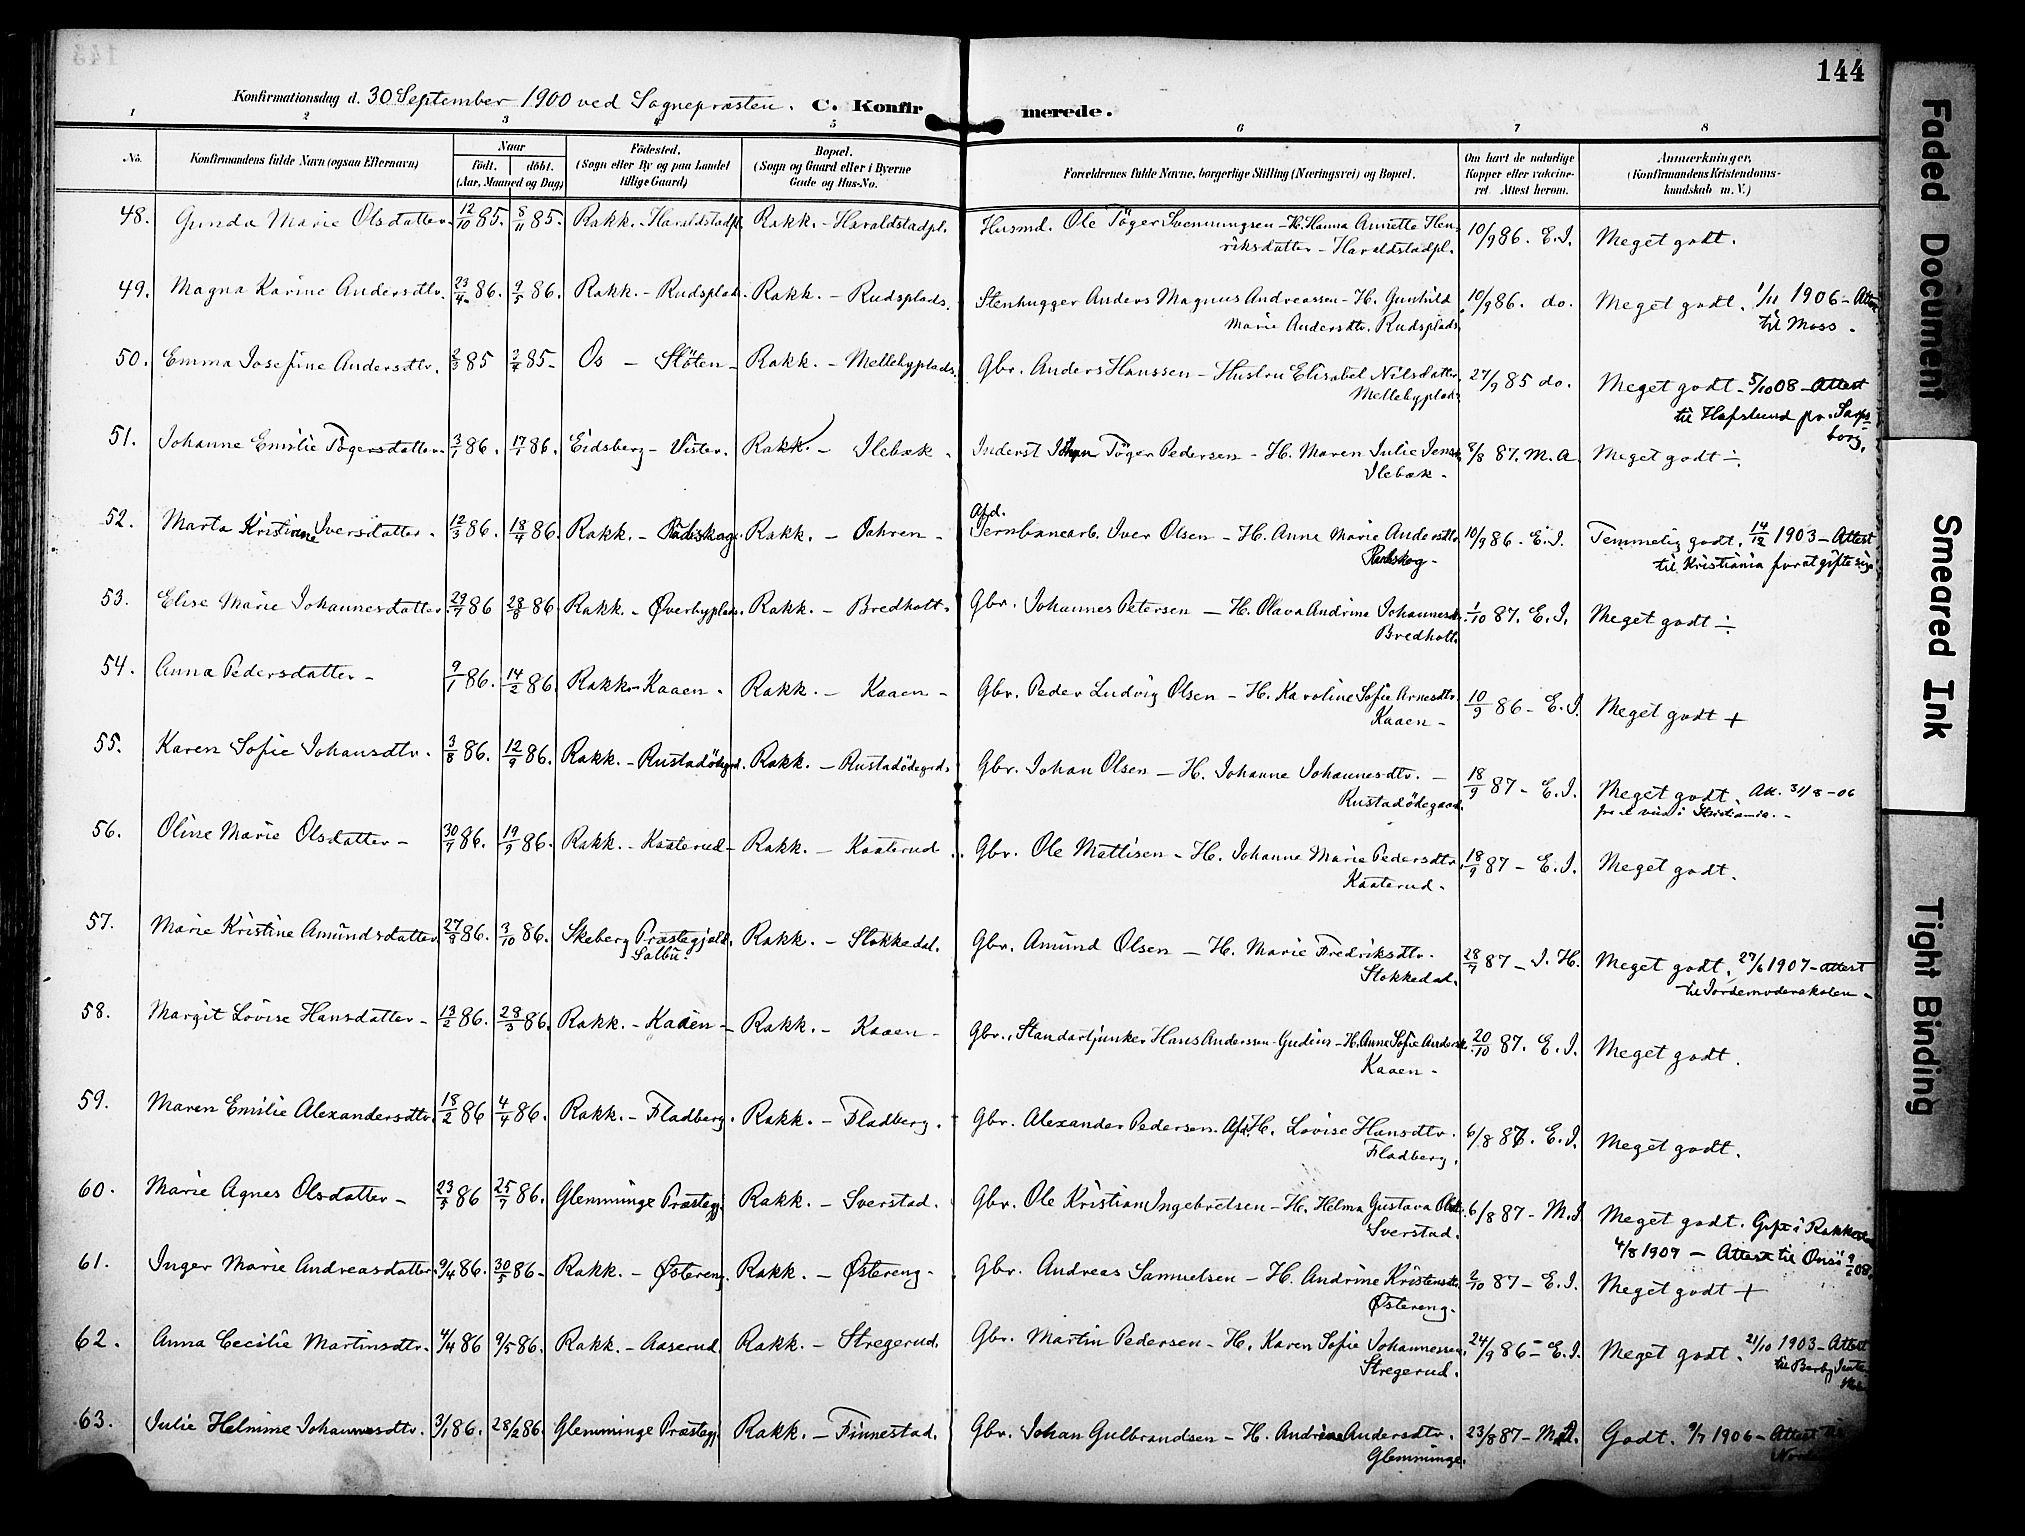 144
Konfirmationsdag d. 30 September 1900 ved Sognepræsten. C. Konfirmerede.
1 2 3 4 5 6 7 8
No. Konfirmandens fulde Navn (ogsaa Efternavn) Naar født. døbt. (Aar, Maaned og Dag) Fødested. (Sogn eller By og paa Landet tillige Gaard) Bopæl. (Sogn og Gaard eller i Byerne Gade og Hus-No. Forældrenes fulde Navne, borgerlige Stilling (Næringsvei) og Bopæl. Om havt de naturlige Kopper eller vaccineret. Attest herom. Anmærkninger. (Konfirmandens Kristendomskundskab m. V.)
48. Gunda Marie Olsdatter. 12/10 85. 8/11 85. Rakk. - Haraldstadpl. Rakk. - Haraldstadpl. Husmd. Ole Töger Svenningsen - H. Hanna Annette Hen- 10/9 86. E.I. Meget godt.
riksdatter - Haraldstadpl.
49. Magna Karine Andersdtr. 23/4 86. 9/5 86. Rakk. - Rudsplads. Rakk. - Rudsplads. Stenhugger Anders Magnus Andreassen - H. Gunhild 10/9 86. do. Meget godt. 1/11 1906 - Attest
Marie Andersdtr. Rudsplads. til Moss.
50. Emma Josefine Andersdtr. 2/3 85 3/4 85 - Os - Slöten - Rakk. - Mellebyplads. Gbr. Anders Hanssen - Hustru Elisabet Nilsdatter 27/9 85 do. Meget godt - 5/10 08 - Attest
Mellebyplads. til Hafslund pr. Sarps-
borg.
51. Johanne Emilie Tögersdatter. 3/1 86. 17/1 86. Eidsberg - Vister. Rakk. - Ilebæk. Inderst Johan Töger Pedersen - H. Maren Julie Jens. 8/8 87. M.A. Meget godt ÷
Ilebæk -
52. Marta Kristiane Iversdatter. 12/3 86. 18/4 86. Rakk. - Rudskog. Rakk. - Dahren - Afd. Jernbanearb. Iver Olsen - H. Anne Marie Andersdtr. 10/9 86. E.I. Temmelig godt. 14/12 1903 - Attest
Rudskog - til Kristiania for at gifte sig
53. Elise Marie Johannesdatter. 29/7 86 28/8 86 Rakk. - Øverbyplads. Rakk. - Bredholt. Gbr. Johannes Petersen - H. Olava Andrine Johannesdtr. 1/10 87. E.I. Meget godt ÷
Bredholt.
54. Anna Pedersdatter - 9/1 86. 14/2 86. Rakk. - Kaaen. Rakk. - Kaaen - Gbr. Peder Ludvig Olsen - H. Karoline Sofie Arnesdtr. 10/9 86 - E.I. Meget godt +
Kaaen -
55. Karen Sofie Johansdtr. 3/8 86. 12/9 86. Rakk. - Rustadödegrd. Rakk. - Rustadödegrd. Gbr. Johan Olsen - H. Johanne Johannesdtr. - 18/9 87 - E.I. Meget godt. Att. 31/8 - 06
Rustadödegaard.
56. Oline Marie Olsdatter - 30/7 86. 19/9 86. Rakk. - Kaaterud - Rakk. - Kaaterud. Gbr. Ole Mattisen - H. Johanne Marie Pedersdtr. 18/9 87 - E.I. Meget godt.
Kaaterud.
57. Marie Kristine Amundsdatter. 27/8 86. 3/10 86. Skeberg Præstegjeld. Rakk. - Stokkedal. Gbr. Amund Olsen - H. Marie Fredriksdtr. 28/7 87 - I.H. Meget godt. 27/6 1907 - Attest
Solbu. Stokkedal. til Jordemoderskolen -
58. Margit Lovise Hansdatter - 13/2 86. 28/3 86. Rakk. - Kaaen - Rakk. - Kaaen - Gbr., Standartjunker Hans Anderssen Gudim - H. Anne Sofie Andersd. 20/10 87. E.I. Meget godt.
Kaaen -
59. Maren Emilie Alexandersdtr. 18/2 86 4/4 86. Rakk. - Fladberg. Rakk. - Fladberg. Gbr. Alexander Pedersen. Afd. H. Lovise Hansdtr. 6/8 86. E.I. Meget godt.
Fladberg.
60. Marie Agnes Olsdatter - 23/5 86 25/7 86. Glemminge Præstegj. Rakk. - Sverstad. Gbr. Ole Kristian Ingebretsen - H. Helma Gustava Olsd. 6/8 87 - M.I Meget godt. Gift i Rakkestad
Sverstad. 4/8 1907 - Attest til Onsö 9/6 08.
61. Inger Marie Andreasdatter. 9/4 86. 30/5 86 - Rakk. - Østereng. Rakk. - Østereng - Gbr. Andreas Samuelsen - H. Andrine Kristensdtr. 2/10 87 - E.I. Meget godt +
Østereng -
62. Anna Cecilie Martinsdtr. 4/4 86 9/5 86. Rakk. - Aaserud. Rakk. - Stregerud. Gbr. Martin Pedersen - H. Karen Sofie Johannessen. 24/9 86 - E.I. Meget godt. 21/10 1903 - Attest
Stregerud. til Berby
63. Julie Helmine Johannesdtr. 3/1 86. 28/2 86. Glemminge Præstegj. Rakk. - Finnestad. Gbr. Johan Gulbrandsen - H. Andrine Andersdtr. 23/8 87 - M.A. Godt. 9/7 1906 - Attest til
Glemminge.
Faded Document
Smeared Ink
Tight Binding